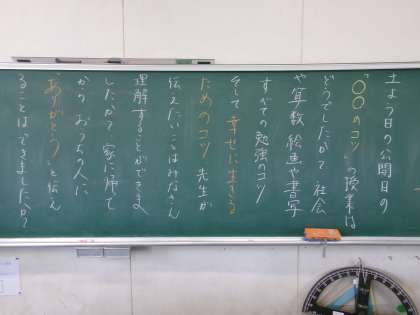 土よう日の公開日の
「〇〇のコツ」の授業は
どうでしたか？社会
や算数、絵画や書写
すべての勉強のコツ
そして幸せに生きる
ためのコツ 先生が
伝えたいことはみなさん
理解することができま
したか？家に帰って
から おうちの人に、
ありがとう」と伝え
ることはできましたか？